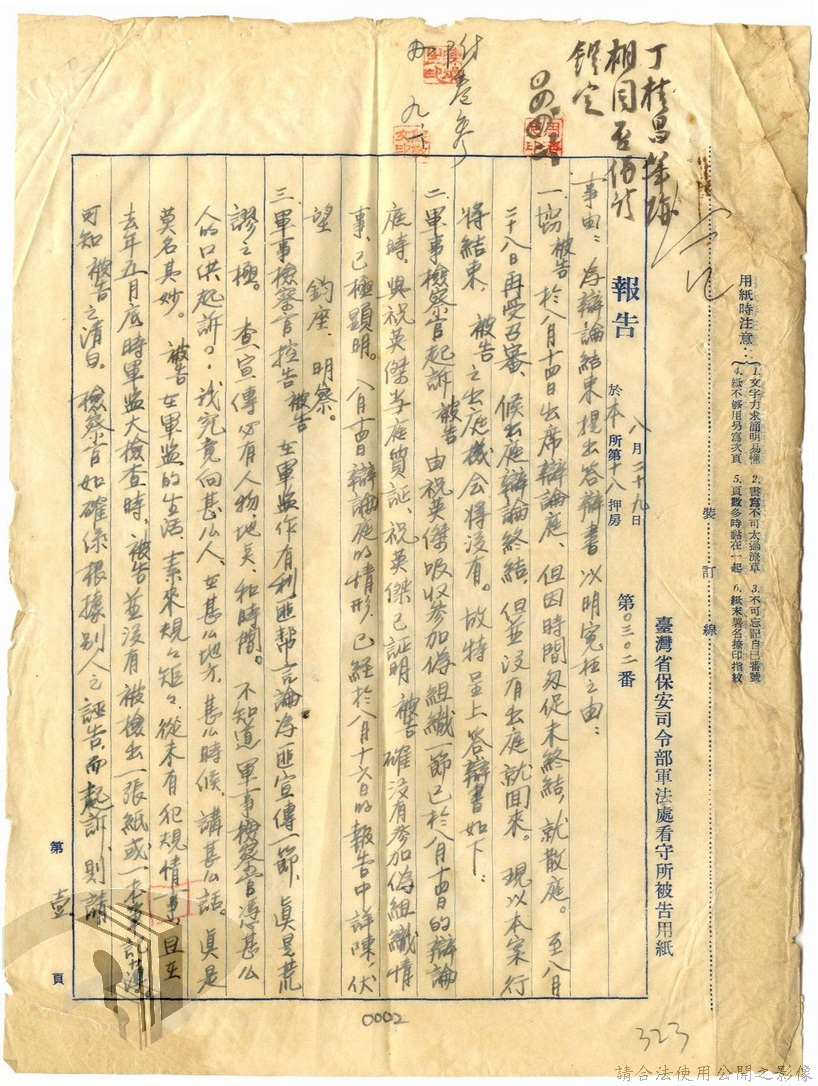 用紙時注意：
1. 文字力求簡明易懂
2. 書寫不可太過潦草
3. 不可忘記自己番號
4. 紙不够用另寫次頁
5. 頁數多時黏在一起
6. 紙末署名捺印指紋
裝訂線
臺灣省保安司令部軍法處看守所被告用紙
丁桂昌筆跡
相同至偽
鑑定
附卷參
報告 八月二十九日 於本所第十八押房 第〇三〇二番
事由：為辯論結束提出答辯書以明冤枉之由：
一、竊被告於八月十四日出席辯論庭、但因時間匆促未終結、就散庭。至八月
二十八日再受召審、候出庭辯論終結、但並沒有出庭就回來。現以本案行
將結束、被告之出庭機会將沒有。故特呈上答辯書如下：
二、軍事檢察官起訴被告由祝英傑吸收參加偽組織一節已於八月十四日的辯論
庭時、與祝英傑等庭質証、祝英傑已証明被告確沒有參加偽組織情
事、已極顯明。八月十四日辯論庭的情形、已經於八月十六日的報告中詳陳伏
望 鈞座、明察。
三、軍事檢察官控告被告在軍監作有利匪幫言論為匪宣傳一節、真是荒
謬之極。查宣傳必有人物、地点、和時間。不知道軍事檢察官憑甚么
人的口供起訴？我究竟向甚么人、在甚么地方、甚么時候、講甚么話。真是
莫名其妙。被告在軍監的生活、素來規々矩々、從未有犯規情事、且在
去年五月底時軍監大檢查時、被告並沒有被檢出一張紙或一本筆記簿
可知被告之清白。檢察官如確係根據別人之誣告而起訴、則請
第壹頁
0002
323
請合法使用公開之影像